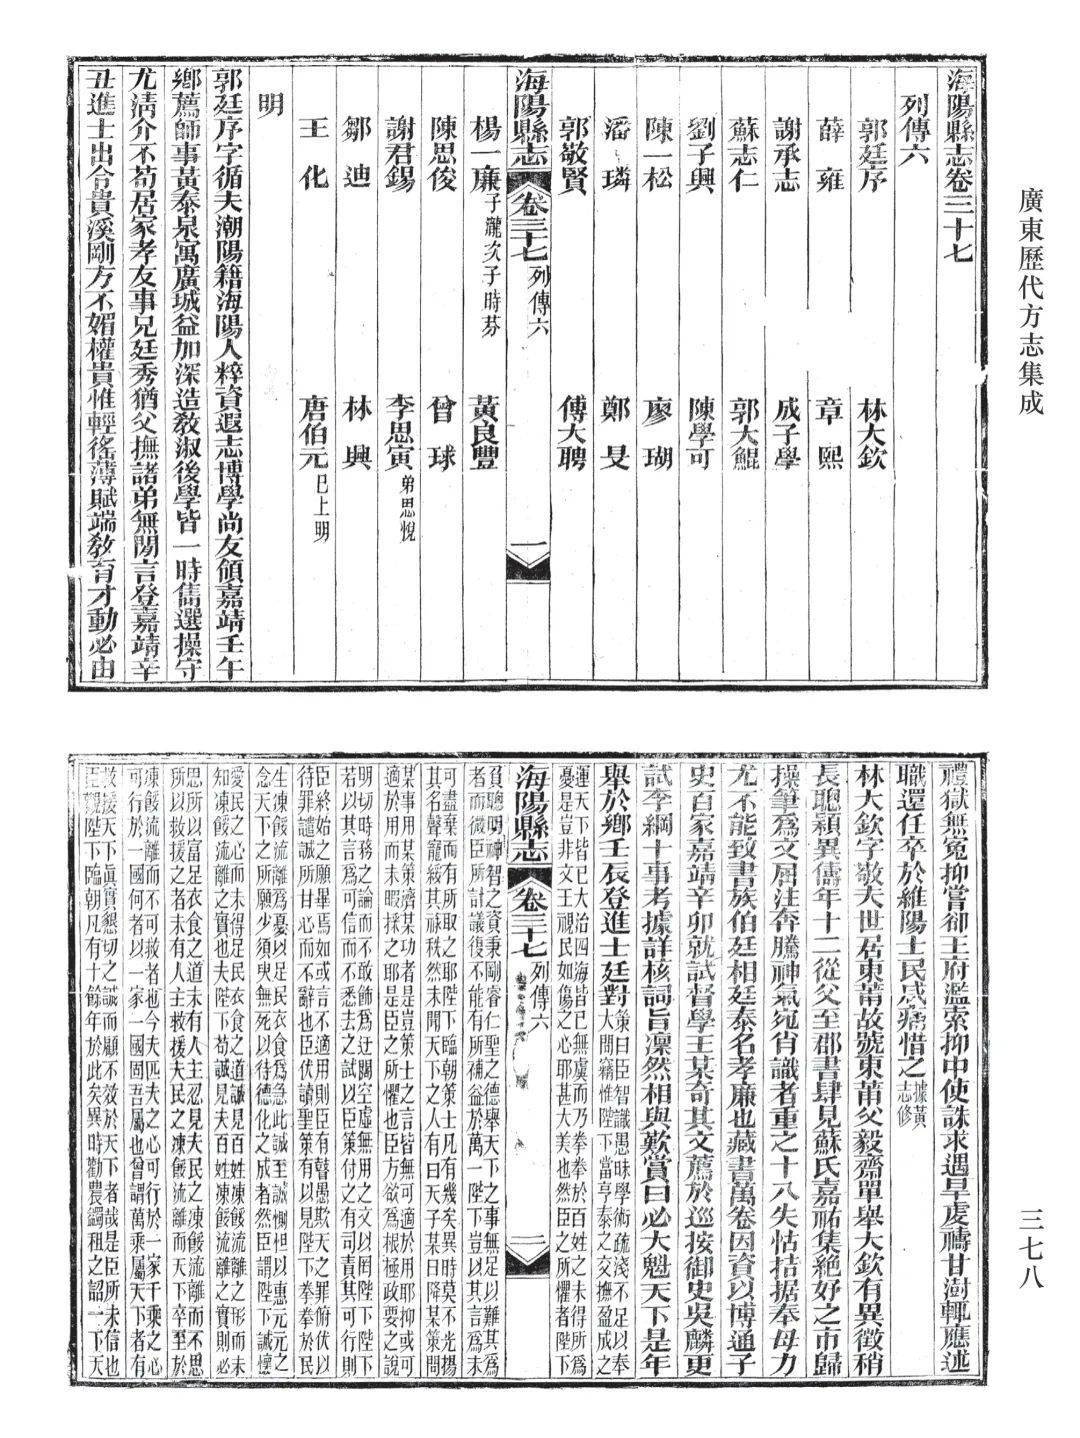 廣東歷代方志集成
三七八
海陽縣志卷三十七
列傳六
郭廷序　林大欽
薛雍　章熙
謝承志　成子學
蘇志仁　郭大鯤
劉子興　陳學可
陳一松　廖瑚
潘璘　鄭旻
郭敬賢　傅大聘
海陽縣志　卷三十七　列傳六　一
楊一廉子瀧次子時芬　黃良豐
陳思俊　曾球
謝君錫　李思寅弟思悅
鄒迪　林興
王化　唐伯元已上明
明
郭廷序字循夫潮陽籍海陽人粹資遐志博學尚友領嘉靖壬午
鄉薦師事黃泰泉寓廣城益加深造敎淑後學皆一時儁選操守
尤淸介不苟居家孝友事兄廷秀猶父撫諸弟無閒言登嘉靖辛
丑進士出令貴溪剛方不媚權貴惟輕徭薄賦端敎育才動必由
禮獄無冤抑嘗卻王府濫索抑中使誅求遇旱虔禱甘澍輒應述
職還任卒於維陽士民咸痛惜之據黃志修
林大欽字敬夫世居東莆故號東莆父毅齋單舉大欽有異徵稍
長聰穎異儔年十二從父至郡書肆見蘇氏嘉祐集絶好之市歸
操筆爲文屈注奔騰神氣宛肖識者重之十八失怙拮据奉母力
尤不能致書族伯廷相廷泰名孝廉也藏書萬卷因資以博通子
史百家嘉靖辛卯就試督學王某奇其文薦於巡按御史吳麟更
試李綱十事考據詳核詞旨凜然相與歎賞曰必大魁天下是年
舉於鄉壬辰登進士廷對策曰臣智識愚昧學術疏淺不足以奉
大問竊惟陛下當亨泰之交撫盈成之
運天下皆已大治四海皆已無虞而乃拳拳於百姓之未得所爲
憂是豈非文王視民如傷之心耶甚大美也然臣之所懼者陛下
海陽縣志　卷三十七　列傳六　二
負聰明神智之資秉剛睿仁聖之德舉天下之事無足以難其爲
者而微臣所計議復不能有所補益於萬一陛下豈以其言爲
可盡棄而有所取之耶陛下臨朝策士凡有幾矣異時莫不光揚
其名聲寵綏其祿秩然未聞天下之人有曰天子某日降某策問
某事用某策濟某功者是豈策士之言皆無可適於用耶抑或可
適於用而未暇採之耶是臣之所懼也臣方欲爲根極政要之說
明切時務之論而不敢飾爲迂闊空虛無用之文以罔陛下陛下
若以其言爲可信而不悉去之試以臣策付之有司責其可行則
臣終始之願畢焉如或言不適用則臣有瞽愚欺天之罪俯伏以
待罪譴誠所甘心而不辭也臣伏讀聖策有以見陛下拳拳於民
生凍餒流離爲憂以足民衣食爲急此誠至誠惻怛以惠元元之
念天下之所願少須臾無死以待德化之成者然臣謂陛下誠懷
愛民之心而未得足民衣食之道誠見百姓凍餒流離之形而未
知凍餒流離之實也夫陛下苟誠見夫百姓凍餒流離之實則必
思所以富足衣食之道未有人主忍見夫民之凍餒流離而不思
所以救援之者未有人主救援夫民之凍餒流離而天下卒至於
凍餒流離而不可救者也今夫匹夫之心可行於一家千乘之心
可行於一國何者以一家一國固吾屬也曾謂萬乘屬天下者有
救援天下眞實懇切之誠而顧不效於天下者哉是臣所未信也
臣觀陛下臨朝凡有十餘年於此矣異時勸農蠲租之詔一下天